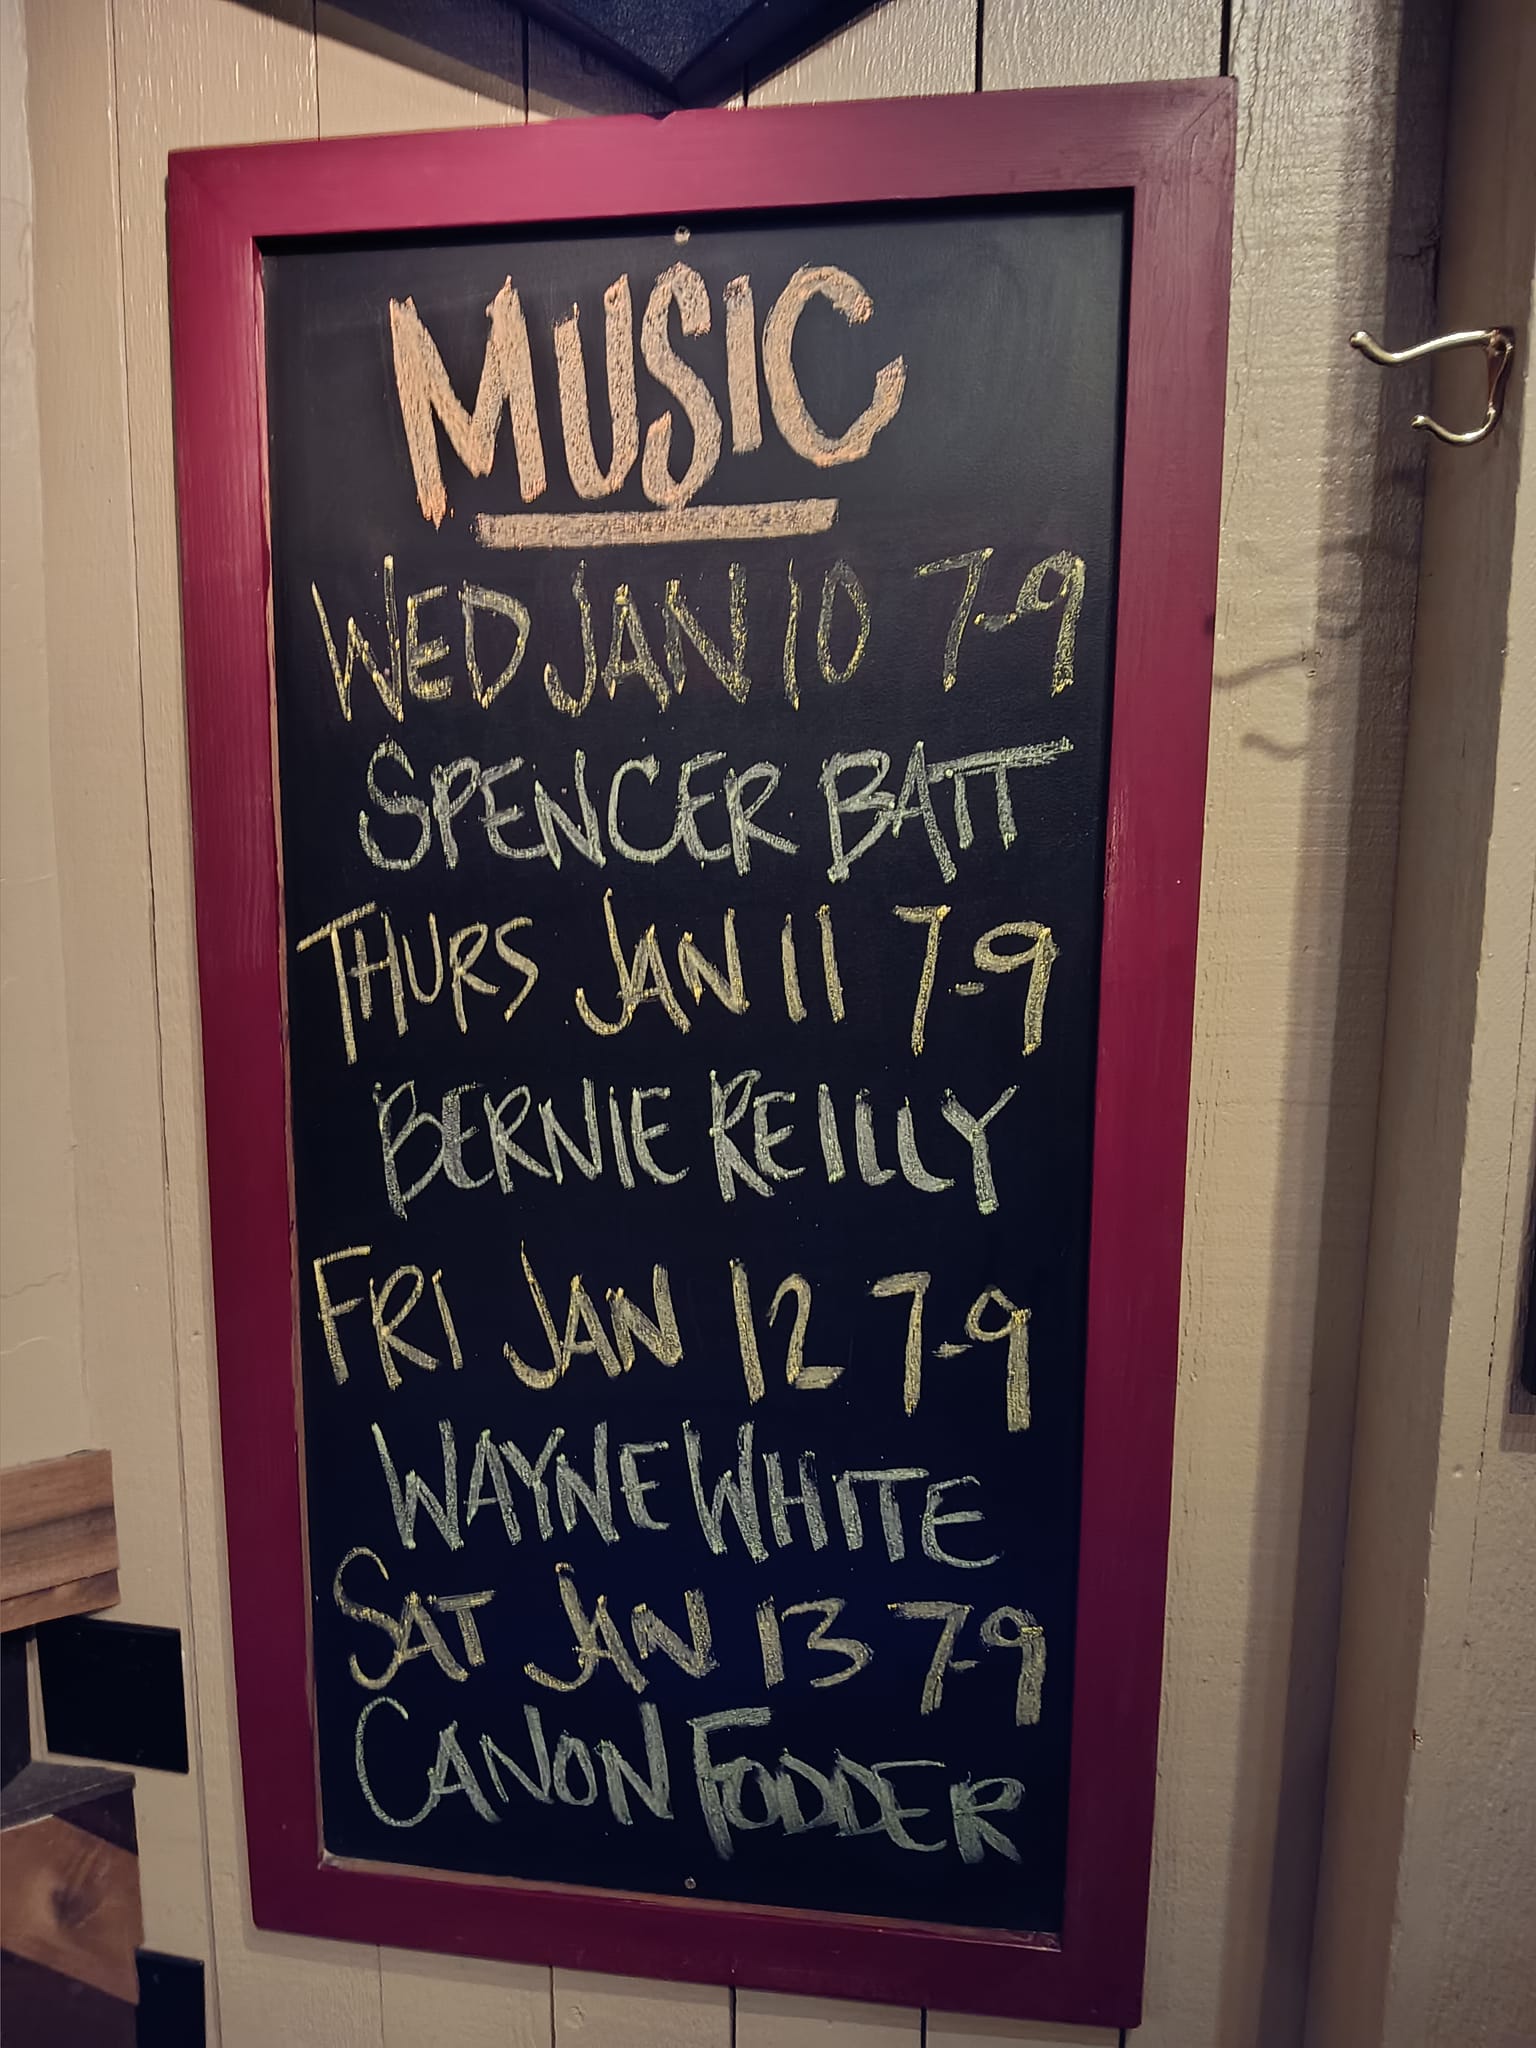 MUSIC
WED JAN 10 7-9
SPENCER BATT
THURS JAN 11 7-9
BERNIE REILLY
FRI JAN 12 7-9
WAYNE WHITE
SAT JAN 13 7-9
CANON FODDER